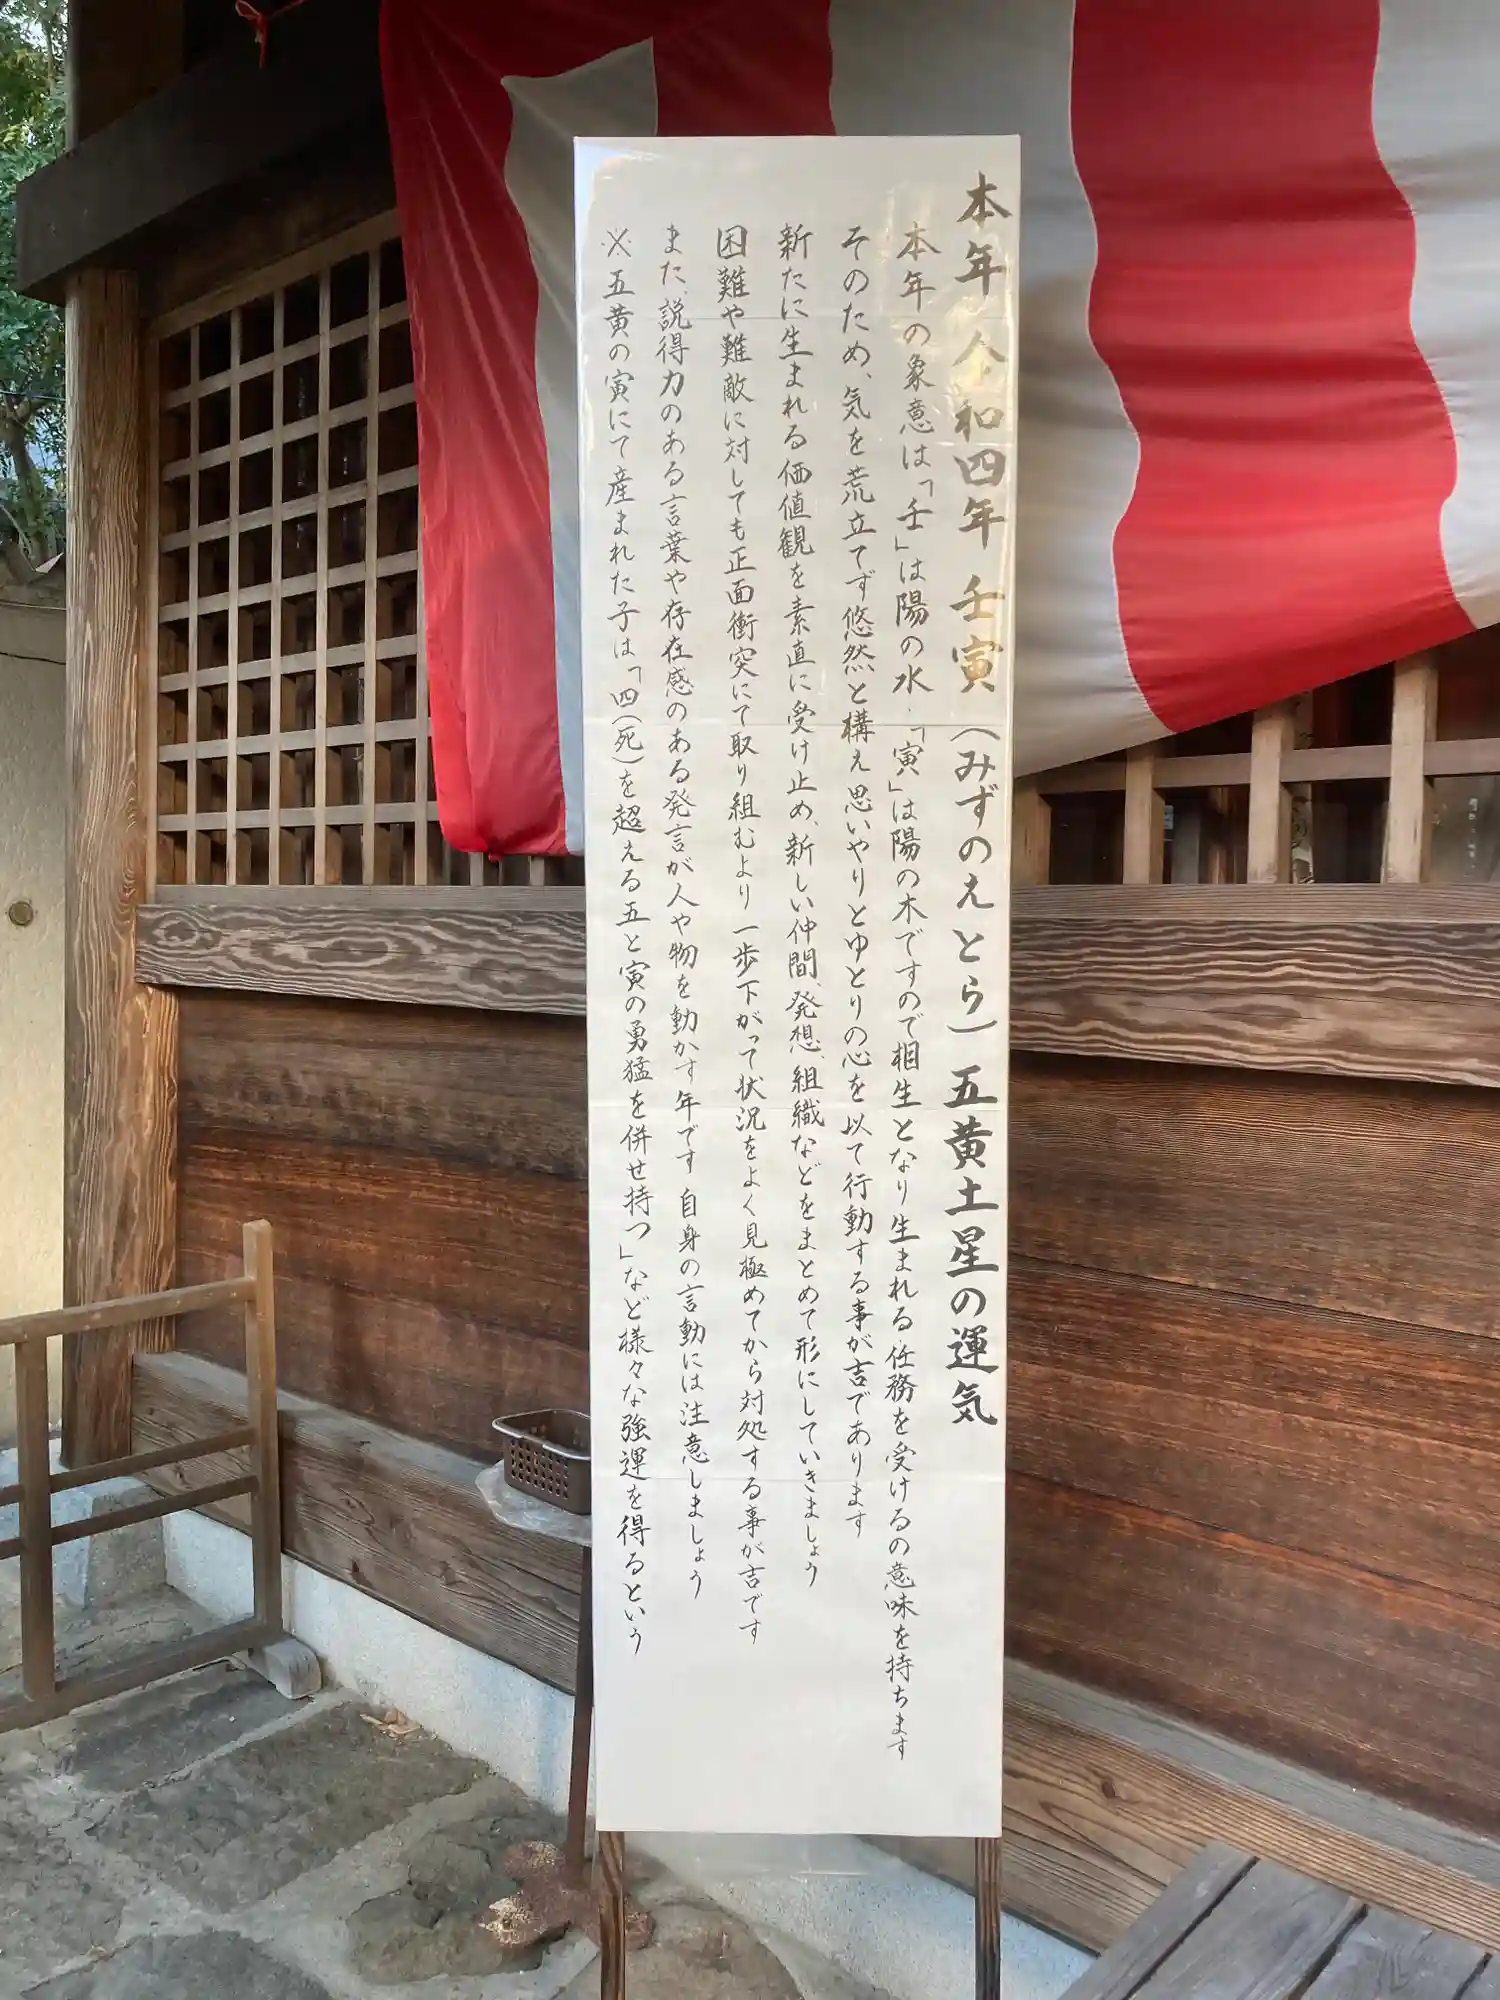 本年 令和四年 壬寅(みずのえとら)五黄土星の運気
本年の象意は「壬」は陽の水・「寅」は陽の木ですので相生となり生まれる任務を受けるの意味を持ちます
そのため、気を荒立てず悠然と構え思いやりとゆとりの心を以て行動する事が吉であります
新たに生まれる価値観を素直に受け止め、新しい仲間、発想、組織などをまとめて形にしていきましょう
困難や難敵に対しても正面衝突にて取り組むより 一歩下がって状況をよく見極めてから対処する事が吉です
また、説得力のある言葉や存在感のある発言が人や物を動かす年です 自身の言動には注意しましょう
※五黄の寅にて産まれた子は「四(死)を超える五と寅の勇猛を併せ持つ」など様々な強運を得るという